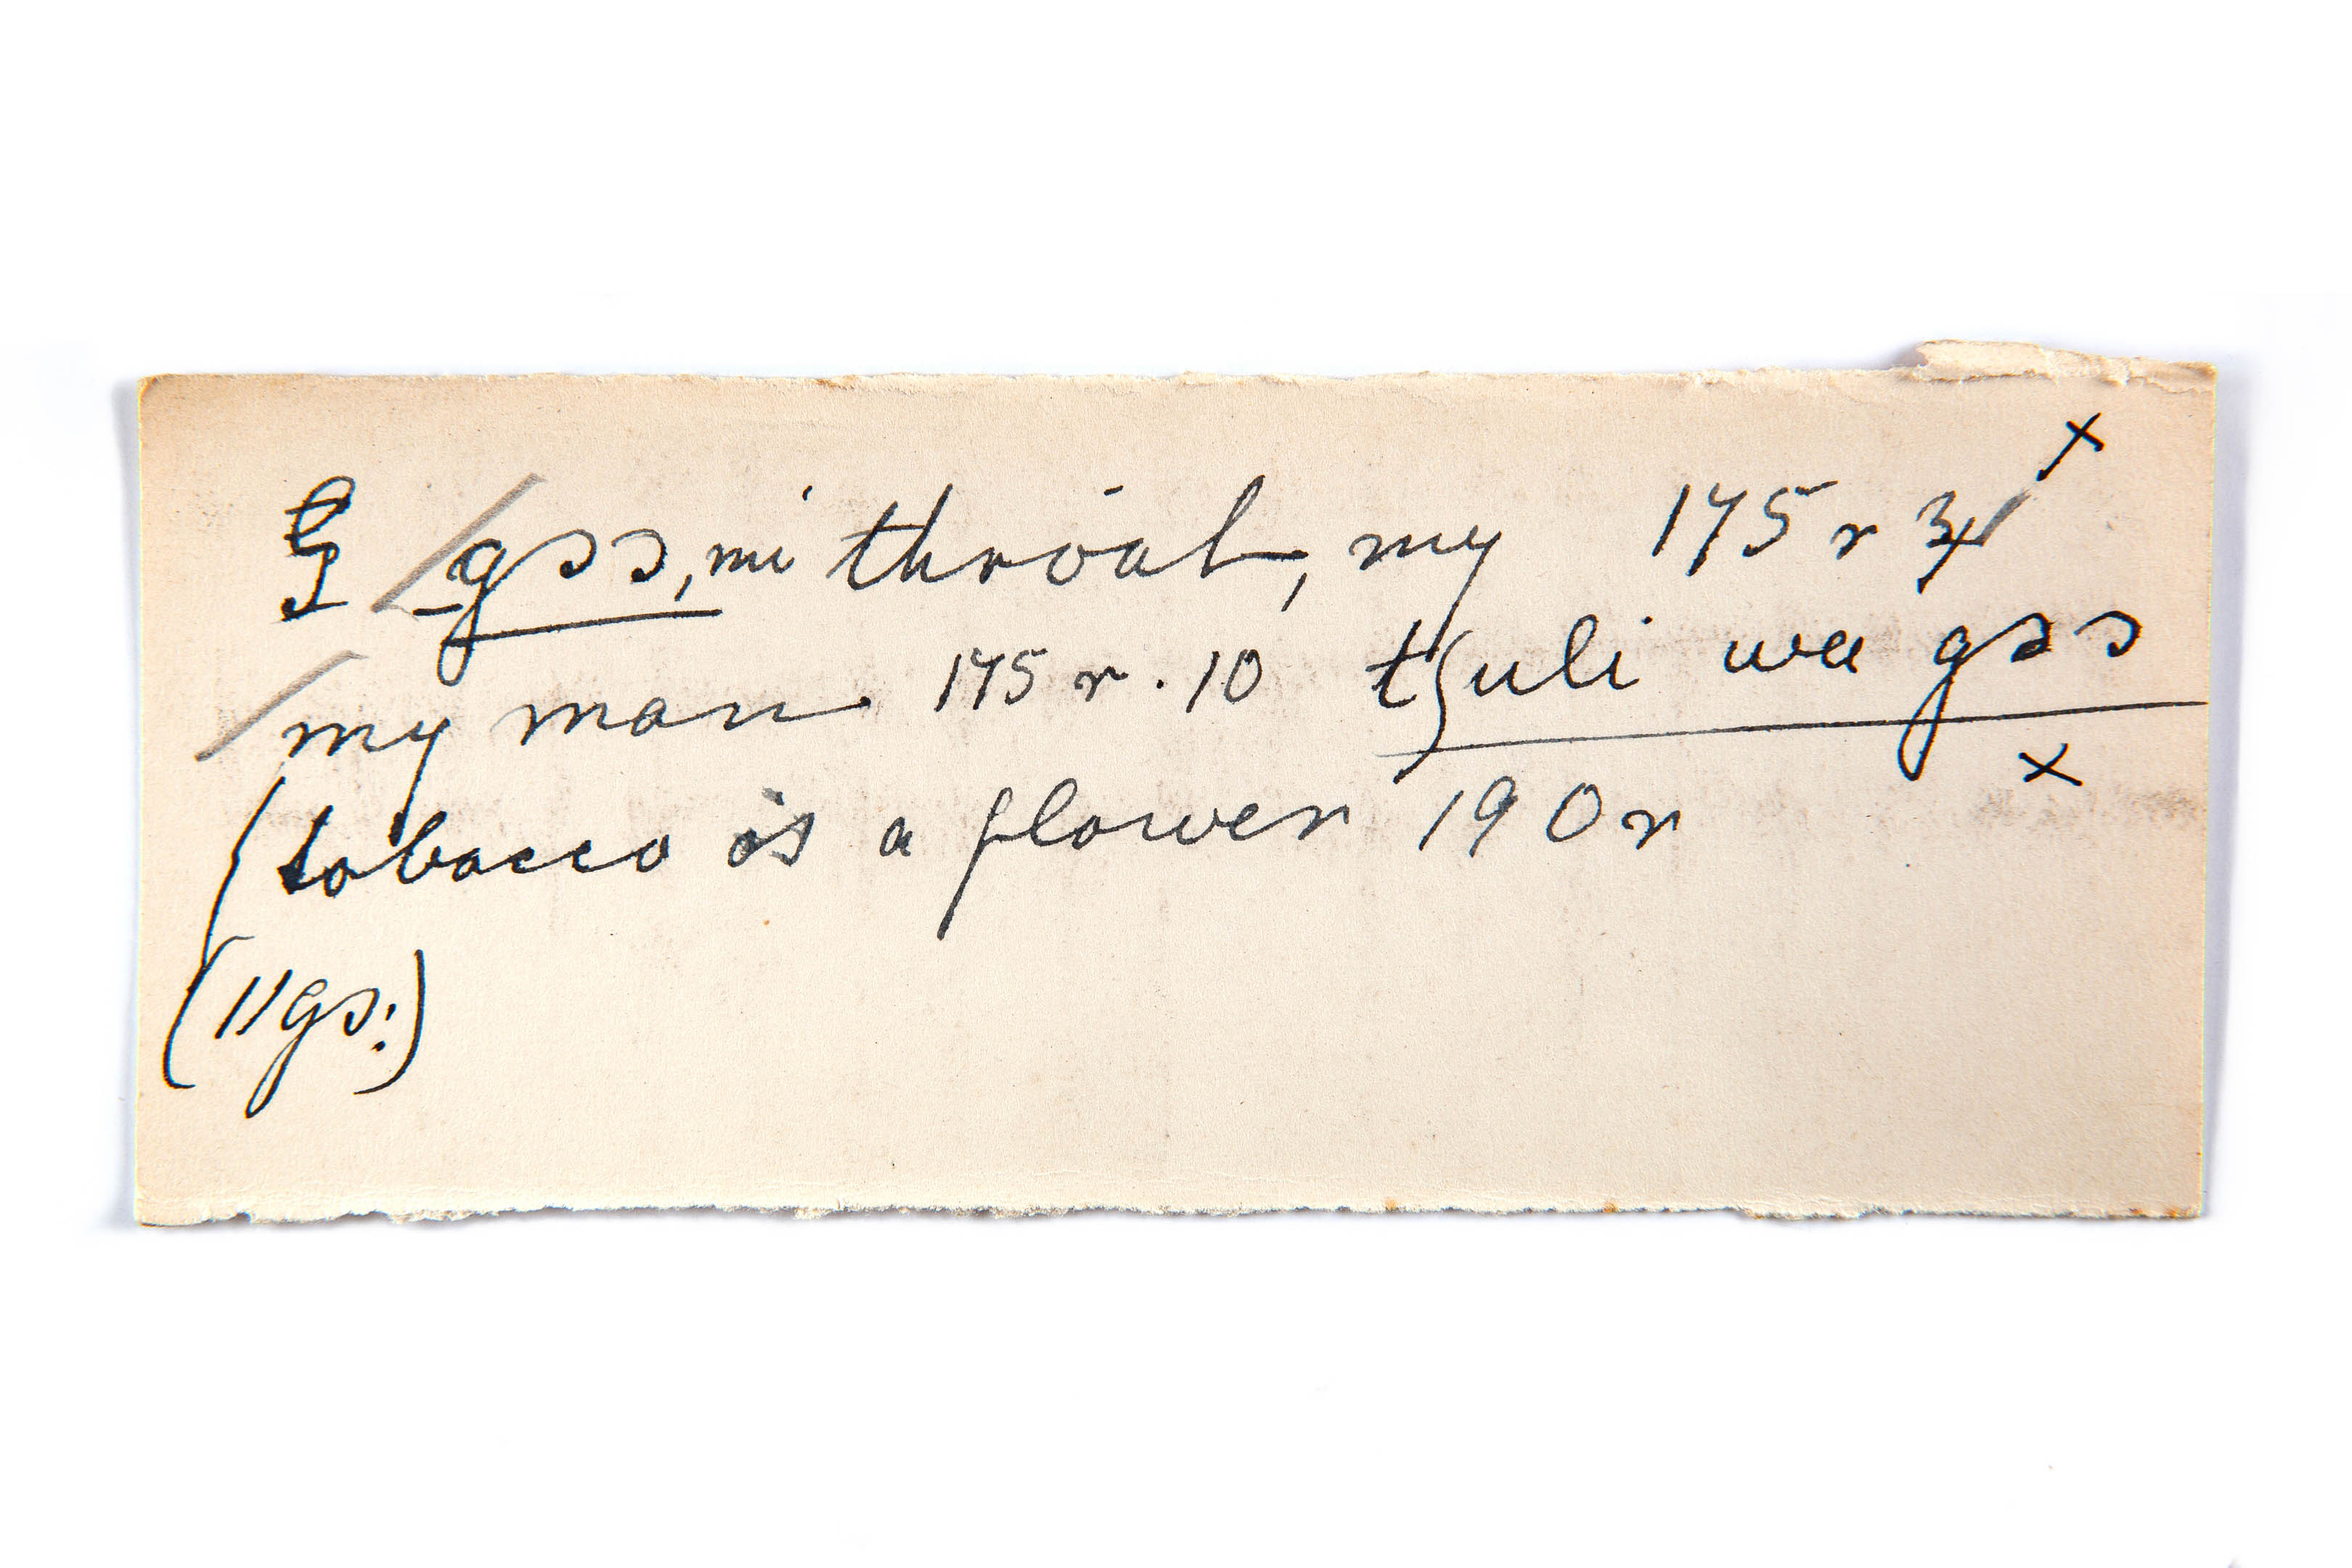 gss, mi throat, my 175 r
my man 175 r. 10 tʃuli we gss
(tobacco is a flower 190 r
(11gs:)